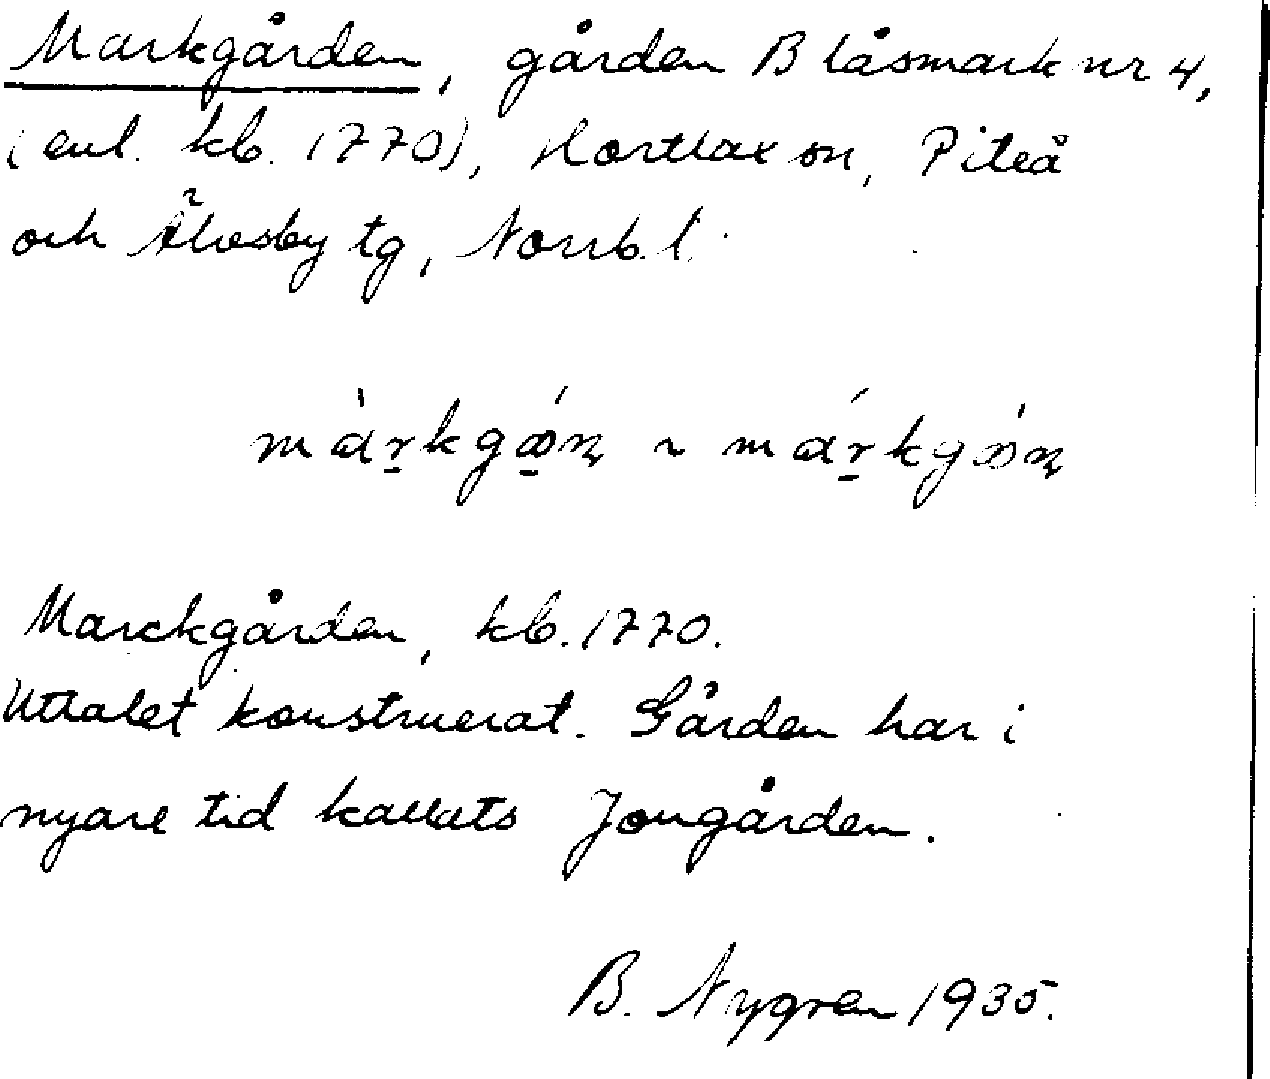 Markgården, gården Blåsmark nr 4,
(enl. kb. 1770), Hortlax sn, Piteå
och Älvsby tg, Norrb. l.
Marckgården, kb. 1770.
Uttalet konstruerat. Gården har i
nyare tid kallats Jongården.
B. Nygren 1935.